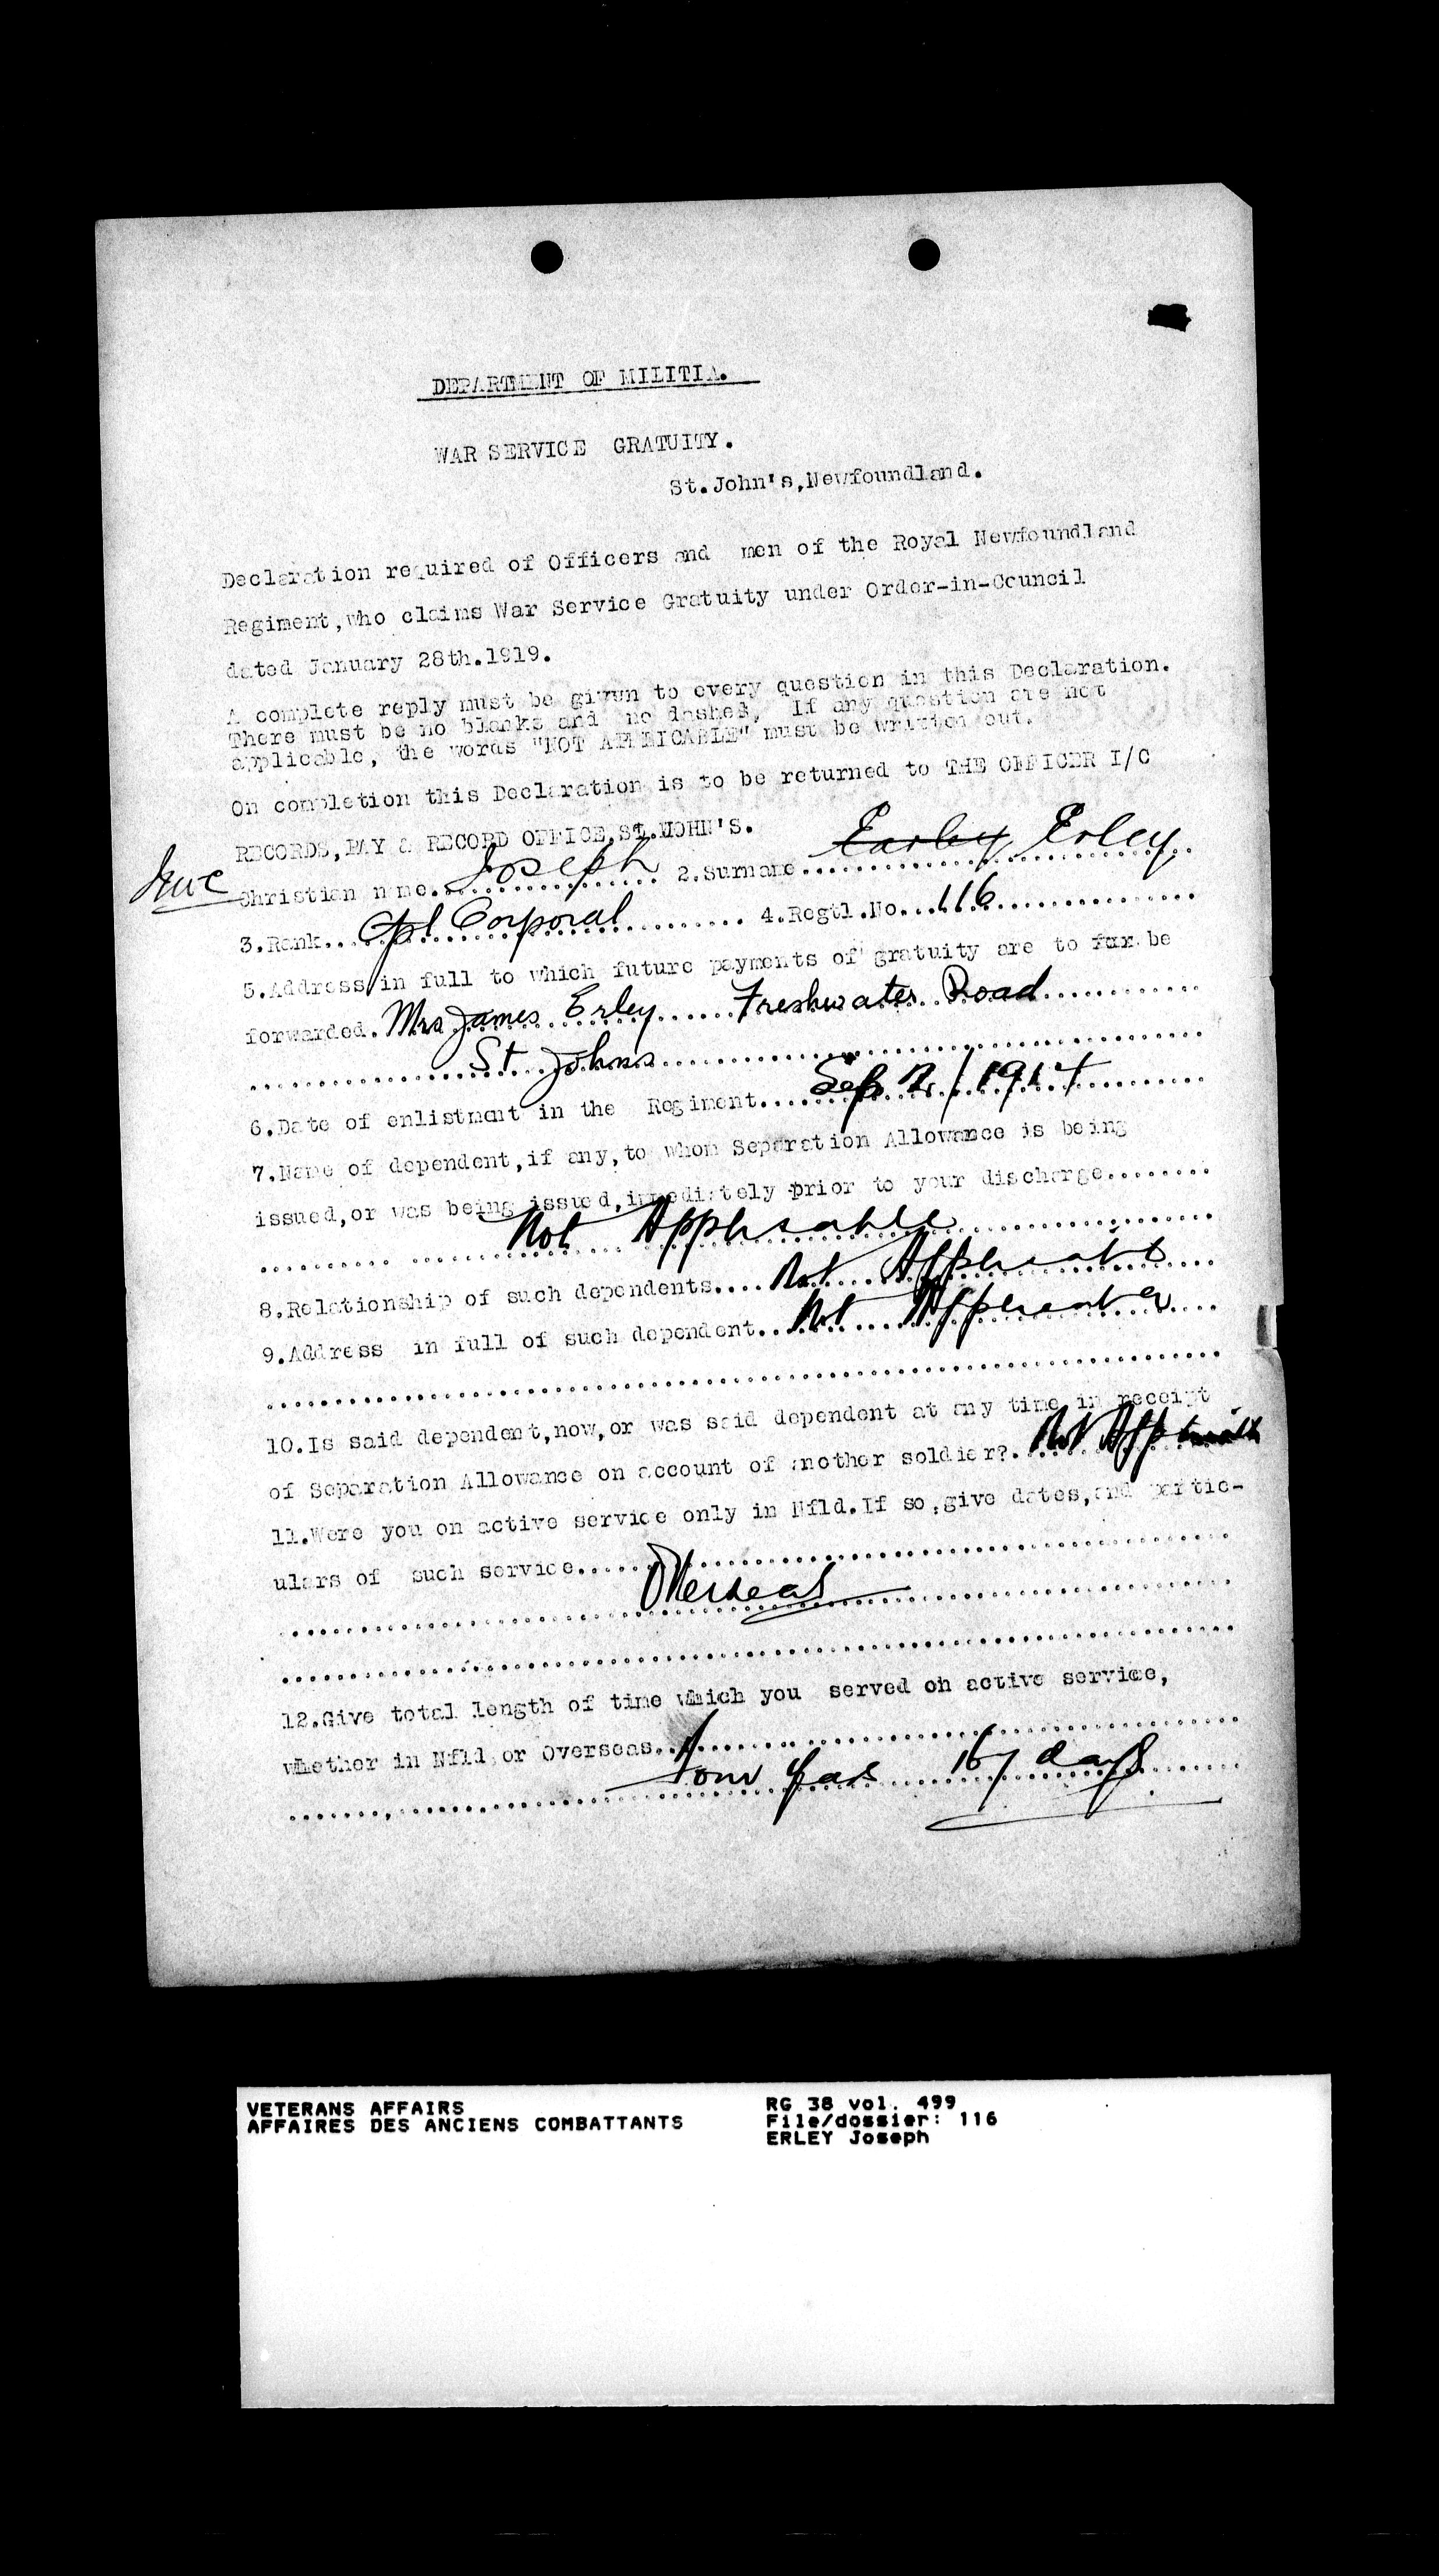 DEPARTMENT OF MILITIA.
WAR SERVICE GRATUITY.
St.John's,Newfoundland.
Declaration required of Officers and men of the Royal Newfoundland
Regiment,who claims War Service Gratuity under Order-in-Council
dated January 28th.1919.
A complete reply must be given to every question in this Declaration.
There must be no blanks and no dashes, If any question are not
applicable, the words "NOT APPLICABLE" must be written out.
On completion this Declaration is to be returned to THE OFFICER I/C
RECORDS,PAY & RECORD OFFICE,St.JOHN'S.
Christian name..Joseph.. 2.Surname..Earley Erley..
3.Rank...Cpl Corporal... 4.Regtl.No...116...
5.Address in full to which future payments of gratuity are to fxx be
forwarded.Mrs James Erley...Freshwater Road...
...St Johns...
6.Date of enlistment in the Regiment...Sep 2/1914...
7.Name of dependent,if any,to whom Separation Allowance is being
issued,or was being issued,immediately prior to your discharge........
...Not Applicable...
8.Relationship of such dependents....Not Applicable...
9.Address in full of such dependent...Not Applicable...
10.Is said dependent,now,or was said dependent at any time in receipt
of Separation Allowance on account of another soldier?.Not App
11.Were you on active service only in Nfld.If so,give dates,and partic-
ulars of such service......
...Overseas...
12.Give total length of time which you served on active service,
whether in Nfld or Overseas...
...Four Yas 167 days
VETERANS AFFAIRS
AFFAIRES DES ANCIENS COMBATTANTS
RG 38 vol. 499
File/dossier: 116
ERLEY Joseph